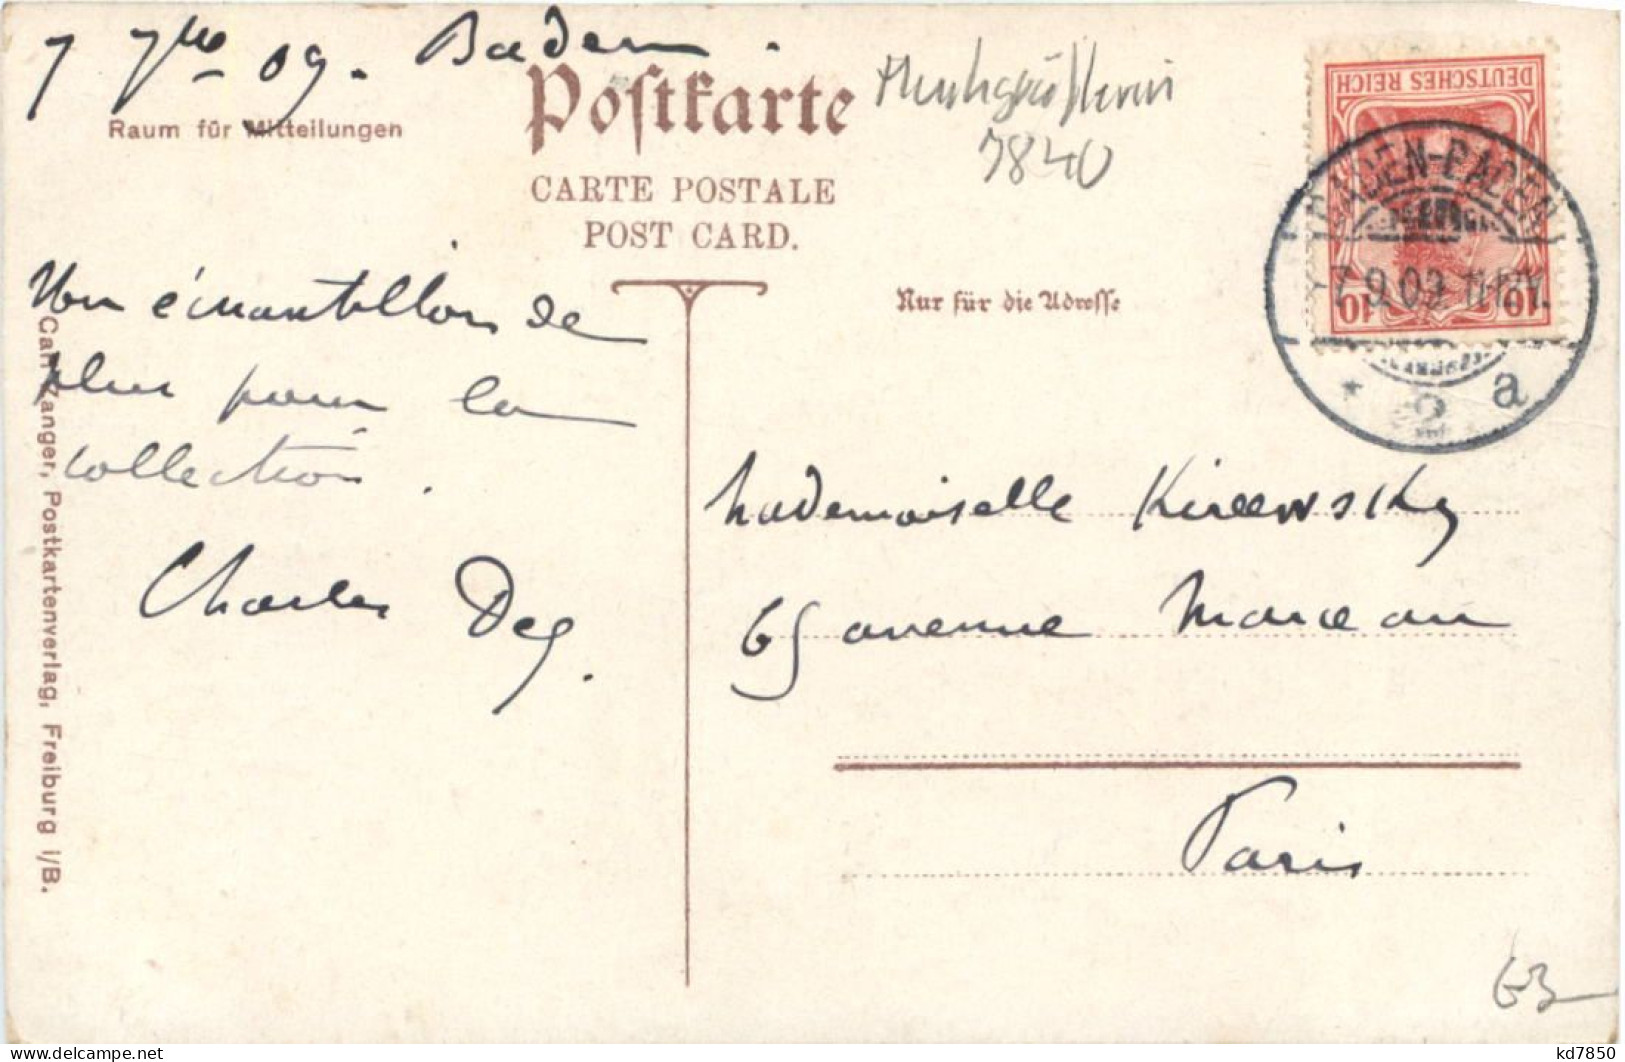 7 7bre 09. Baden
Raum für Mitteilungen
Postkarte
CARTE POSTALE
POST CARD.
7840
DEUTSCHES REICH
10 10
BADEN-BADEN
7.9.09 11-12V.
* 2 a
Nur für die Adresse
Un échantillon de
plus pour la
collection.
Charles Deg.
Mademoiselle Kireewsky
65 avenue Marceau
Paris
Carl Zanger, Postkartenverlag, Freiburg i/B.
63
kd7850